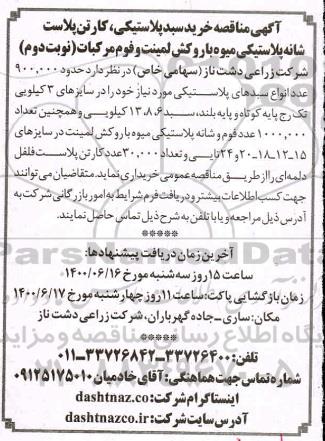 آگهی مناقصه خرید سبد پلاستیکی، کارتن پلاست
شانه پلاستیکی میوه با روکش لمینت و فوم مرکبات (نوبت دوم)
شرکت زراعی دشت ناز (سهامی خاص) در نظر دارد حدود ۹۰۰,۰۰۰
عدد انواع سبدهای پلاستیکی مورد نیاز خود را در سایزهای ۳ کیلویی
تک رج پایه کوتاه و پایه بلند، سبد ۱۳،۸،۶ کیلویی و همچنین تعداد
۱۰۰۰,۰۰۰ عدد فوم و شانه پلاستیکی میوه با روکش لمینت در سایزهای
۱۵-۱۲-۱۸-۲۰ و ۲۴ تایی و تعداد ۳۰,۰۰۰ عدد کارتن پلاست فلفل
دلمه ای را از طریق مناقصه عمومی خریداری نماید. متقاضیان می توانند
جهت کسب اطلاعات بیشتر و دریافت فرم شرایط به امور بازرگانی شرکت به
آدرس ذیل مراجعه و یا با تلفن به شرح ذیل تماس حاصل نمایند.
*****
آخرین زمان دریافت پیشنهادها:
ساعت ۱۵ روز سه شنبه مورخ ۱۴۰۰/۰۶/۱۶
زمان بازگشایی پاکت: ساعت ۱۱ روز چهارشنبه مورخ ۱۴۰۰/۶/۱۷
مکان: ساری - جاده گهرباران، شرکت زراعی دشت ناز
*****
تلفن: ۳۳۷۲۶۴۰۰-۳۳۷۲۶۸۴۲-۰۱۱
شماره تماس جهت هماهنگی: آقای خادمیان ۰۹۱۲۵۱۷۵۰۱۰
اینستاگرام شرکت: dashtnaz.co
آدرس سایت شرکت: dashtnazco.ir